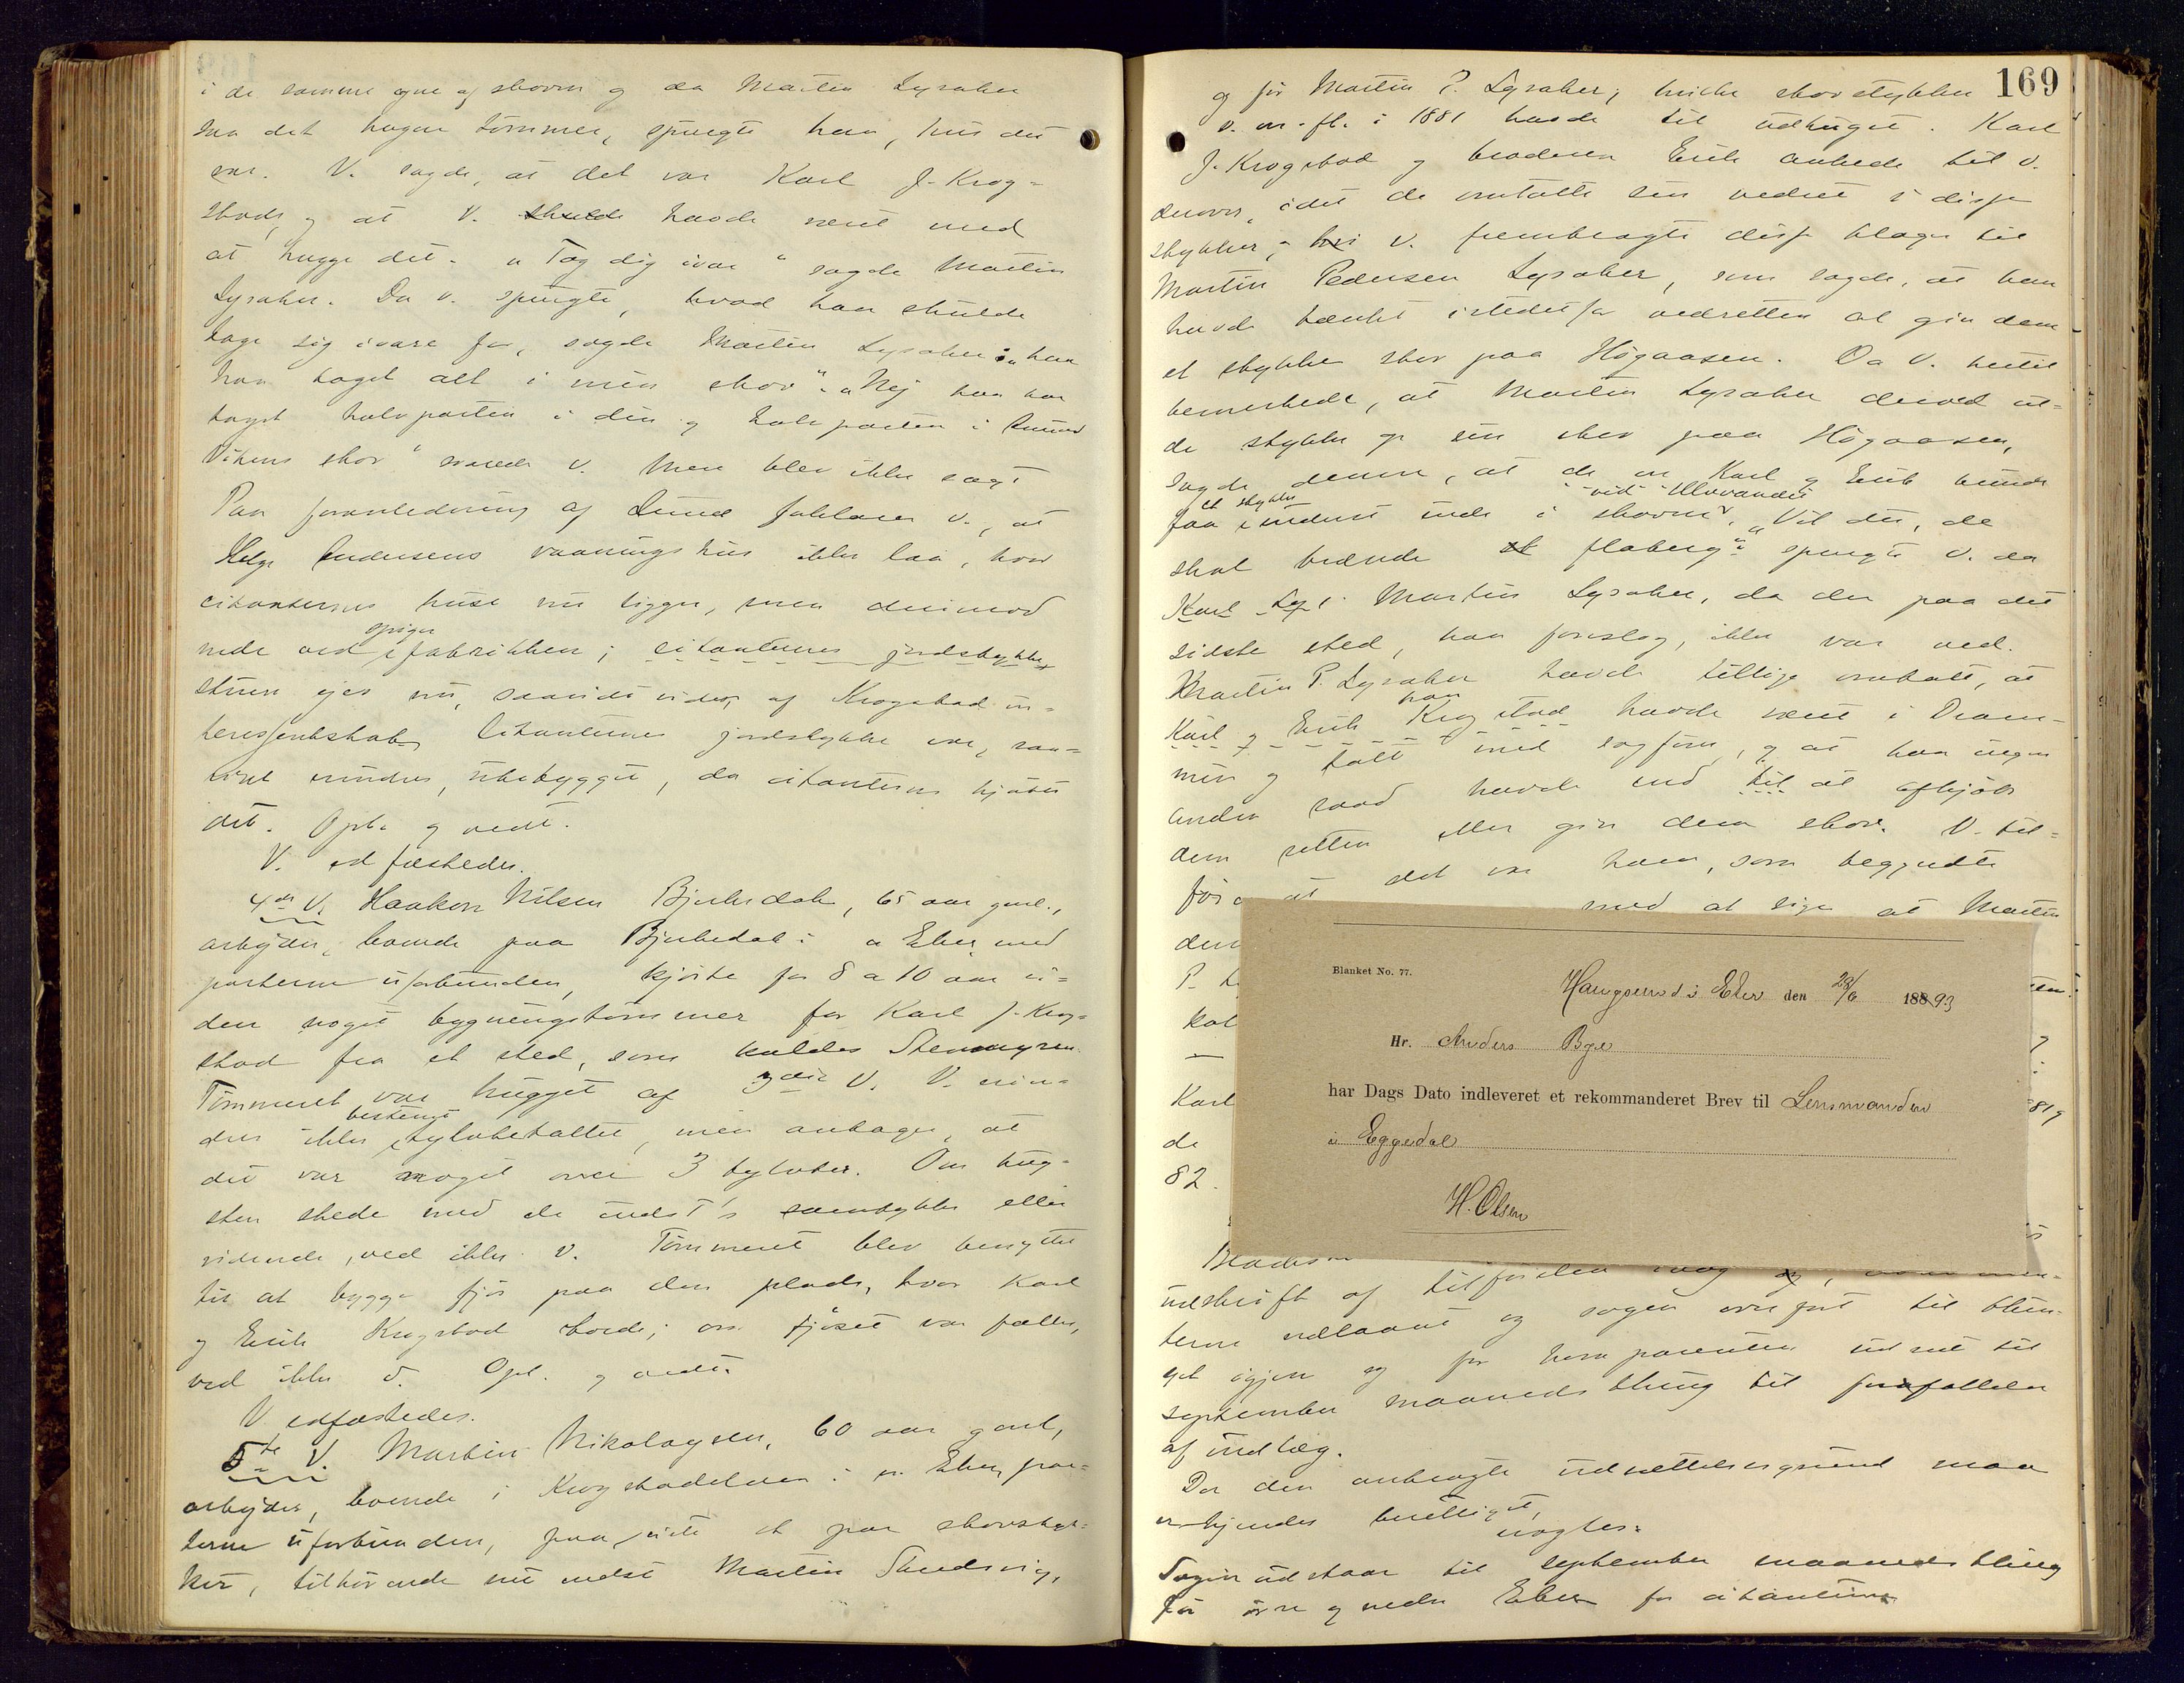 i de samme egne af skoven og da Martin Lysaker
saa det hugne tømmer, spurgte han, hvis det
var. V. sagde, at det var Karl J. Krog-
stads, og at V. skulde havde været med
at hugge det. "Tag dig ivare" sagde Martin
Lysaker. Da V. spurgte, hvad han skulde
tage sig ivare for, sagde Martin Lysaker: "han
har taget alt i min skov". "Nej han har
taget halvparten i din og halvparten i
Vikens skov" svarede V. Mere blev ikke sagt
Paa foranledning af Lund forklarer V., at
Helge Andersens vaaningshus ikke laa, hvor
citanternes huse nu ligger, men derimod
nede ved spiger fabrikken; citanternes jordstykke
stuen ejes nu, saavidt vides, af Krogstad in-
teressentskab. Citanternes jordstykke var, saa-
vidt erindres, ubebygget, da citanterne kjøbte
det. Opl. og vedt.
V. edfæstedes.
4de V. Haakon Nilsen Bjerkedok, 65 aar gml.,
arbejder, boende paa Bjerkedok i n Eker, med
parterne uforbunden, kjørte for 8 a 10 aar si-
den noget bygningstømmer for Karl J. Krog-
stad fra et sted, som kaldes Stenmyren
Tømmeret var hugget af 3die V. V. erin-
drer ikke bestemt tylvtetallet, men antager, at
det var noget over 3 tylvter. Om hug-
sten skede med de indst's samtykke eller
vidende, ved ikke V. Tømmeret blev benyttet
til at bygge fjøs paa den plads, hvor Karl
og Erik Krogstad boede; om fjøset var fælles,
ved ikke V. Opl. og vedt.
V. edfæstedes.
5te V. Martin Nikolaysen, 60 aar gml,
arbejder, boende i Krogstadelven i n. Eker, par-
terne uforbunden, paaviste et par skovstyk-
ker, tilhørende nu nedst Martin Strandvig,
169
og før Martin P. Lysaker, hvilke skovstykker
V. m. fl. i 1881 havde til udhuget. Karl
J. Krogstad og broderen Erik ankede til V.
derover, idet de omtalte sin vedret i disse
stykker; V. frembragte disse klager til
Martin Pedersen Lysaker, som sagde, at han
havde tænkt istedetfor vedretten at give dem
et stykke skov paa Høgaasen. Da V. hertil
bemerkede, at Martin Lysaker derved ud-
de stykke op sin skov paa Høgaasen,
sagde denne, at de Karl og Erik kunde
faa et stykke inderst inde i skoven ved Ulevandet. "Vil du, de
skal brænde flaberg" spurgte V. da
Karl Lys Martin Lysaker, da der paa det
sidste sted, han foreslog, ikke var ved.
Martin P. Lysaker havde tillige omtalt, at
Karl og Erik Krogstad havde været i Dram-
men og talt med sagfører, og at han ingen
anden raad havde end til at afkjøbe
dem retten eller give dem skov. V. til-
føier at det var ham, som begyndte
med at sige at Martin
P.
Karl
de
82.
Blanket No. 77.
Haugsund i Eker den 28/6 18893
Hr. Anders Bye
har Dags Dato indleveret et rekommanderet Brev til Lensmanden
i Eggedal
H. Olsen
udskrift af tilførslen
terne udlaant og sagen overført til thin-
get igjen og for komparenten udsat til
september maanedsthing til fremfattelse
af indlæg.
Da den anbragte udsættelsesgrund maa
erkjendes berettiget,
eragtes:
Sagen udstaar til september maaneds thing
for øvre og nedre Eker for citanterne